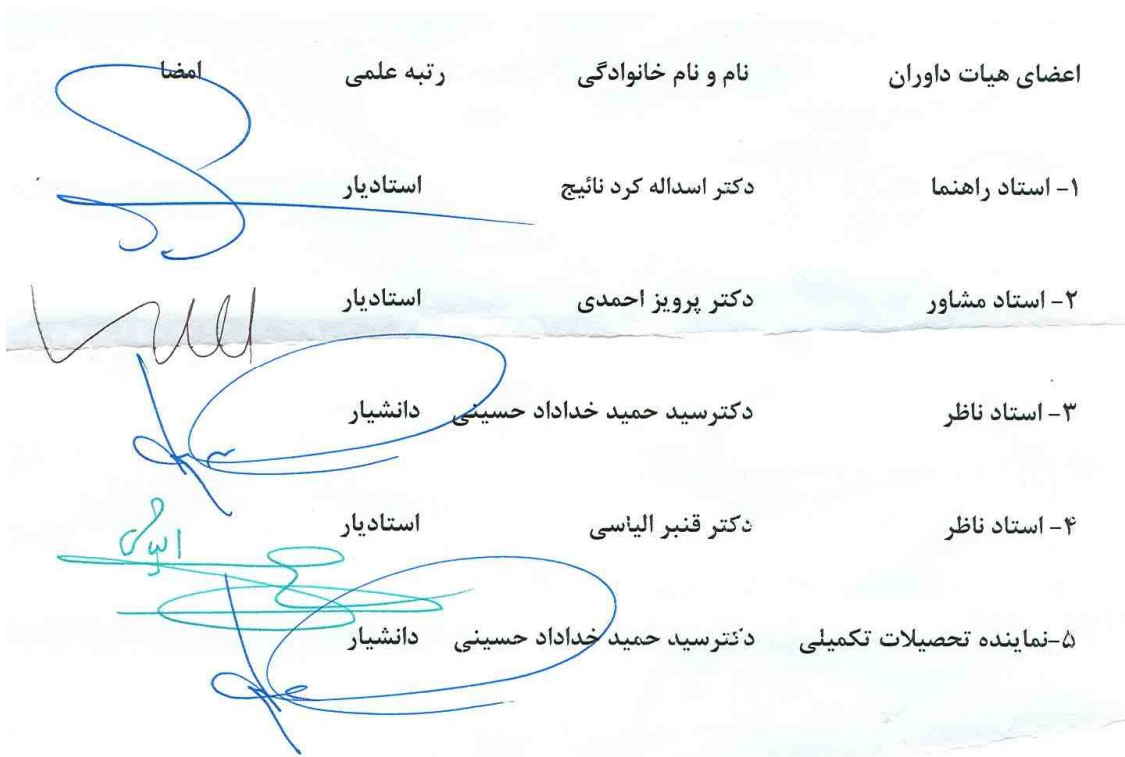 اعضای هیات داوران نام و نام خانوادگی رتبه علمی امضا
۱- استاد راهنما دکتر اسداله کرد نائیج استادیار
۲- استاد مشاور دکتر پرویز احمدی استادیار
۳- استاد ناظر دکترسید حمید خداداد حسینی دانشیار
۴- استاد ناظر دکتر قنبر الیاسی استادیار
۵-نماینده تحصیلات تکمیلی دکترسید حمید خداداد حسینی دانشیار